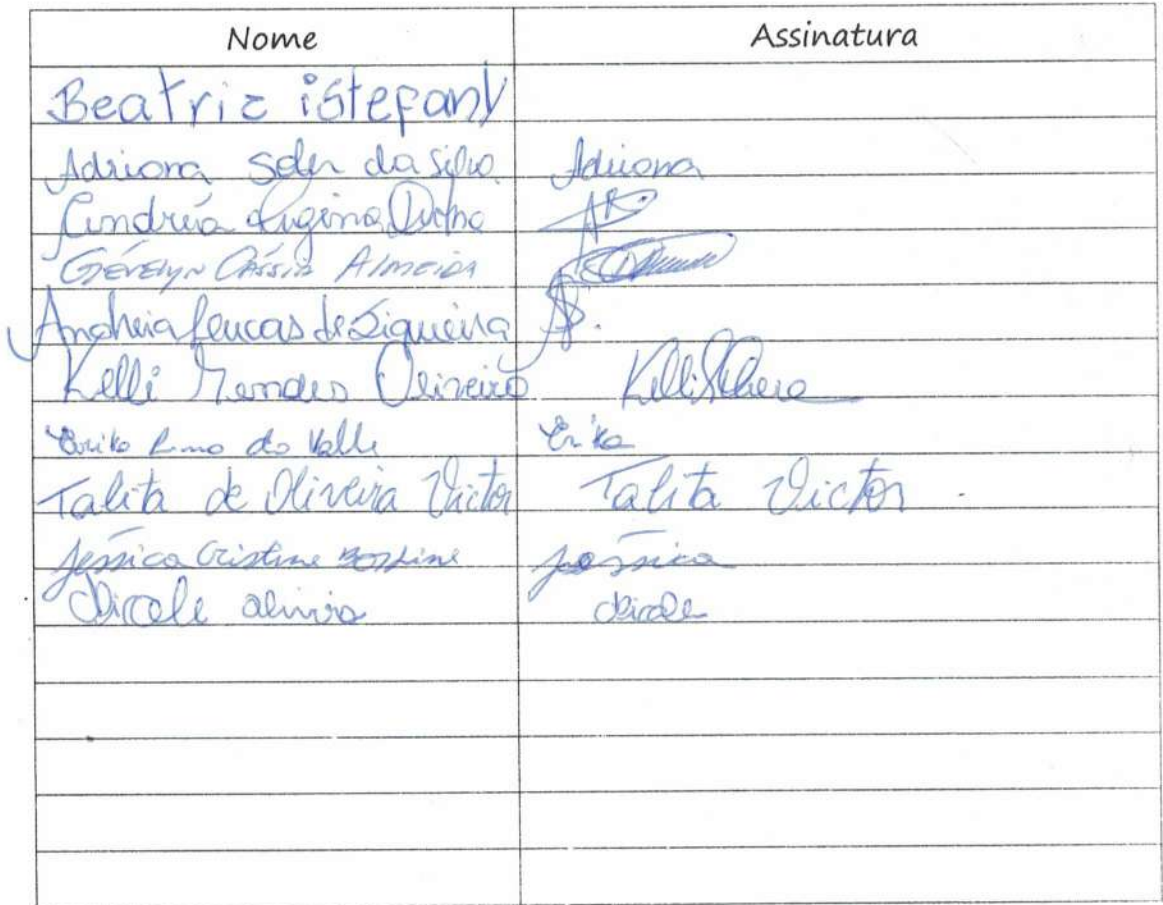 Nome Assinatura
Beatriz iStefany
Adriana Soler da Silva Adriana
Andréia Regina
Gévelyn Cássia Almeida
Andreia Leucas de Siqueira
Kelli Mendes Oliveira Kelli
Erika do Valle Erika
Talita de Oliveira Victor Talita Victor
Jéssica Cristine Jéssica